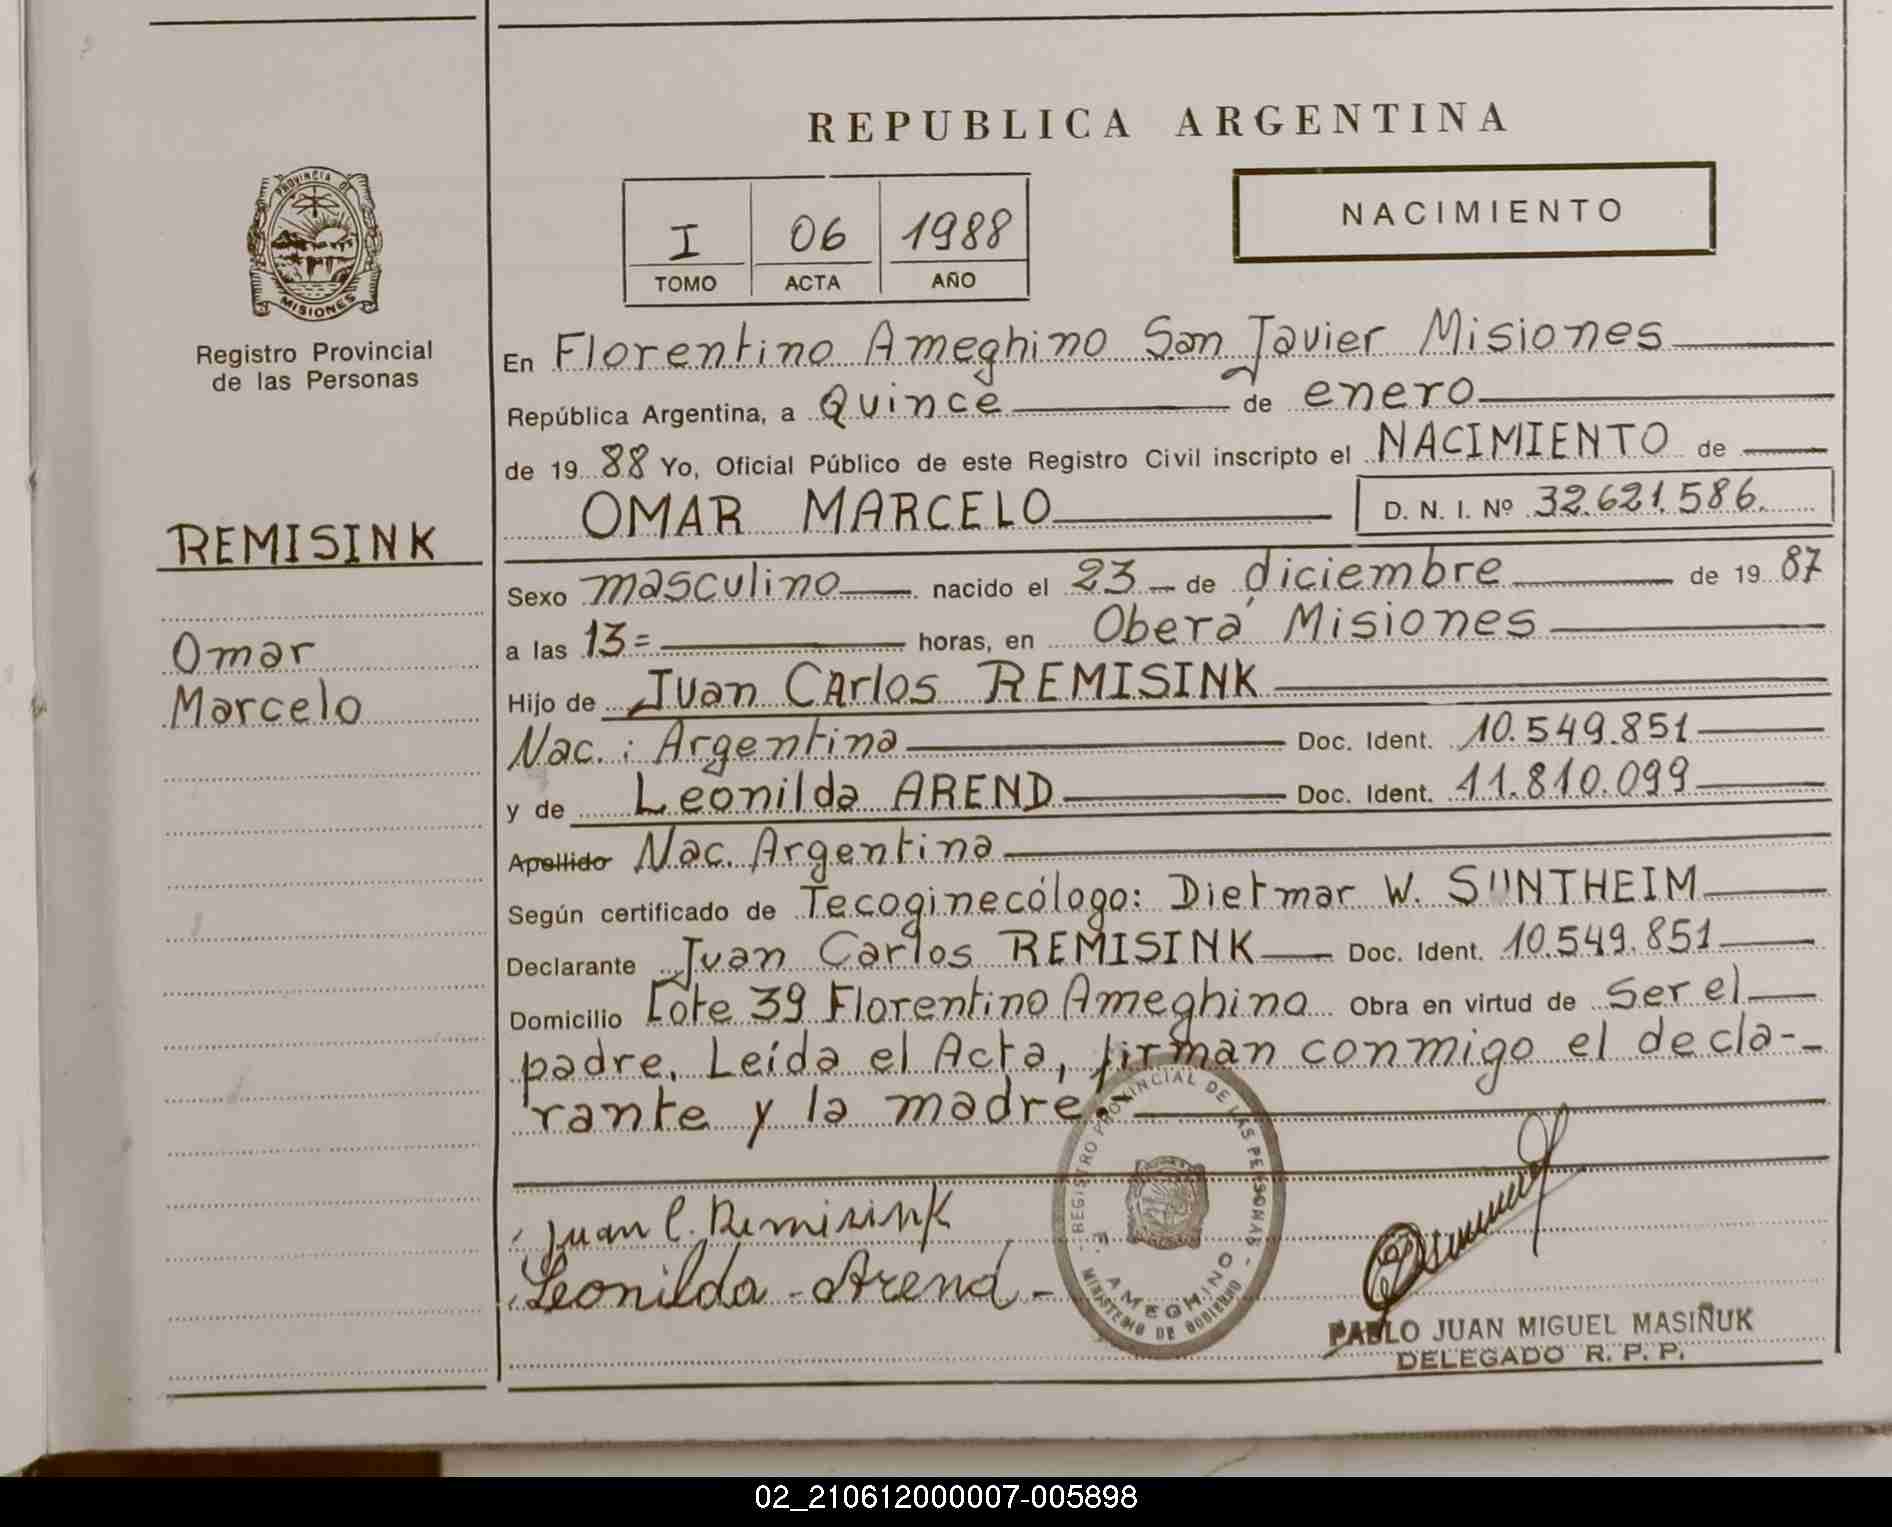 REPUBLICA ARGENTINA
NACIMIENTO
I 06 1988
TOMO ACTA AÑO
PROVINCIA DE
MISIONES
Registro Provincial
de las Personas
REMISINK
Omar
Marcelo
En Florentino Ameghino San Javier Misiones
República Argentina, a Quince de enero
de 19 88 Yo, Oficial Público de este Registro Civil inscripto el NACIMIENTO de
OMAR MARCELO D. N. I. Nº 32.621.586.
Sexo masculino nacido el 23 de diciembre de 19 87
a las 13= horas, en Oberá Misiones
Hijo de Juan Carlos REMISINK
Nac.: Argentina Doc. Ident. 10.549.851
y de Leonilda AREND Doc. Ident. 11.810.099
Apellido Nac. Argentina
Según certificado de Tecoginecólogo: Dietmar W. SUNTHEIM
Declarante Juan Carlos REMISINK Doc. Ident. 10.549.851
Domicilio Lote 39 Florentino Ameghino Obra en virtud de ser el
padre. Leída el Acta, firman conmigo el decla-
rante y la madre.-
Juan C. Remisink
Leonilda - Arend -
REGISTRO PROVINCIAL DE LAS PERSONAS
F. AMEGHINO
MINISTERIO DE GOBIERNO
PABLO JUAN MIGUEL MASIÑUK
DELEGADO R. P. P.
02_210612000007-005898